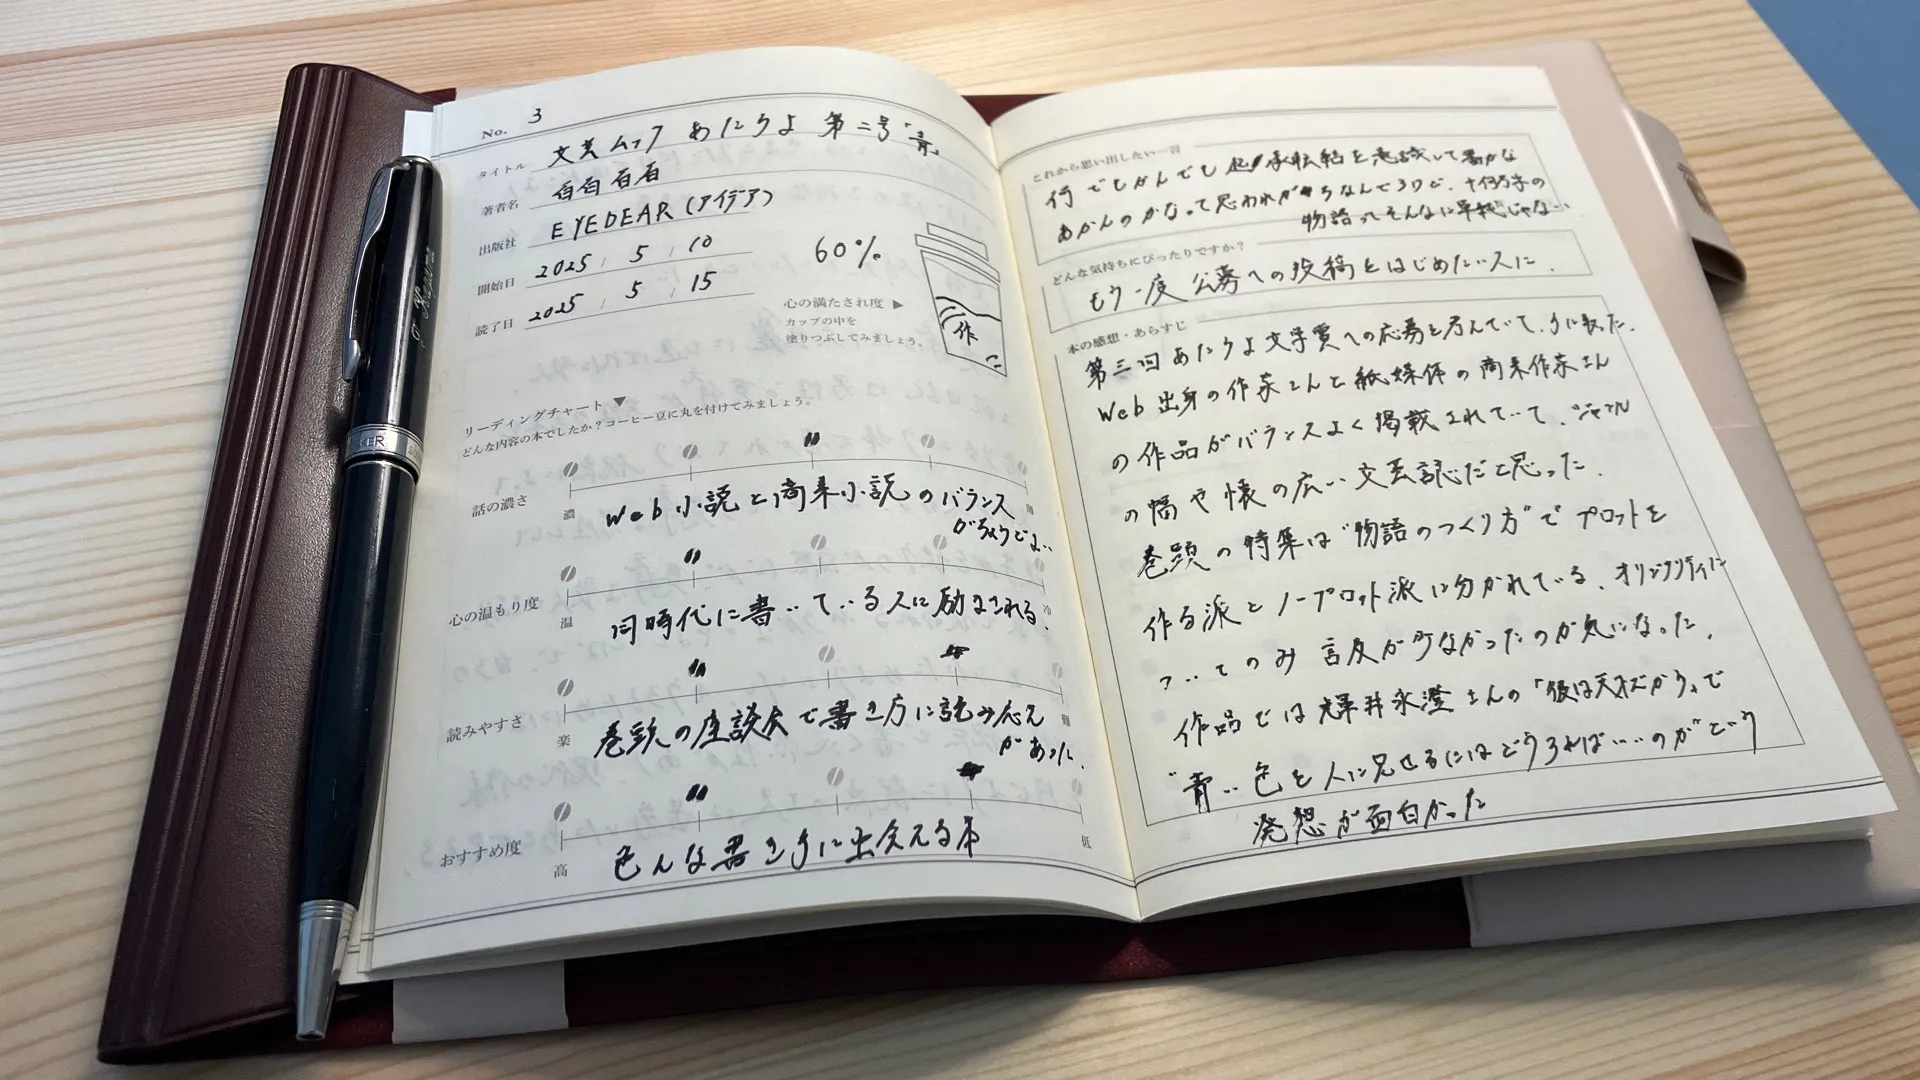 No. 3
タイトル 文芸ムック あたらよ 第二号「青」
著者名 百百百百
出版社 EYEDEAR (アイデア)
開始日 2025 / 5 / 10
読了日 2025 / 5 / 15
60%
心の満たされ度 ▶
カップの中を
塗りつぶしてみましょう。
作
リーディングチャート ▼
どんな内容の本でしたか?コーヒー豆に丸を付けてみましょう。
話の濃さ
濃
Web小説と商業小説のバランス
がちょうどよい
心の温もり度
温 冷
同時代に書いている人に励まされる。
読みやすさ
楽 難
巻頭の座談会で書き方に読み応え
があった。
おすすめ度
高 低
色んな書き手に出会える本
これから思い出したい一言
何でもかんでも起承転結を意識して書かな
あかんのかなって思われがちなんですけど、
物語ってそんなに単純じゃない
どんな気持ちにぴったりですか?
もう一度公募への投稿をはじめたい人に.
本の感想・あらすじ
第三回あたらよ文学賞への応募を考えていて、手に取った.
Web出身の作家さんと紙媒体の商業作家さん
の作品がバランスよく掲載されていて、ジャンル
の幅や懐の広い文芸誌だと思った.
巻頭の特集は"物語のつくり方"でプロットを
作る派とノープロット派に分かれている、オリジナリティに
ついてのみ言及が少なかったのが気になった.
作品では輝井永澄さんの「彼は天才だから」で
"青い色を人に見せるにはどうすれば…のか"という
発想が面白かった
PARKER